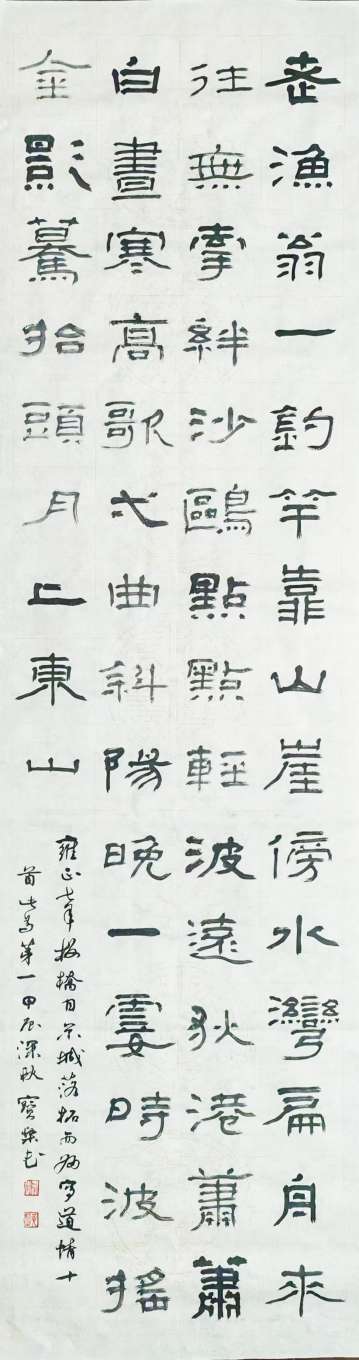 老漁翁一釣竿靠山崖傍水灣扁舟来
往無牽絆沙鷗點點輕波遠荻港蕭蕭
白晝寒高歌弌曲斜陽晚一霎時波搖
金影驀抬頭月上東山
雍正七年板橋自京城落拓而歸寫道情十
首此為第一甲辰深秋寶書